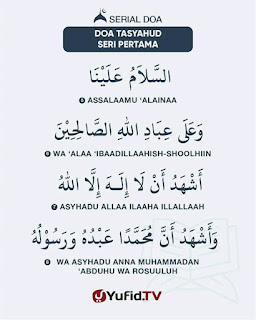 SERIAL DOA
DOA TASYAHUD
SERI PERTAMA
السَّلَامُ عَلَيْنَا
5 ASSALAAMU 'ALAINAA
وَعَلَى عِبَادِ اللهِ الصَّالِحِيْنَ
6 WA 'ALAA 'IBAADILLAAHISH-SHOOLHIIN
أَشْهَدُ أَنْ لَا إِلَـهَ إِلَّا اللهُ
7 ASYHADU ALLAA ILAAHA ILLALLAAH
وَأَشْهَدُ أَنَّ مُحَمَّدًا عَبْدُهُ وَرَسُوْلُهُ
8 WA ASYHADU ANNA MUHAMMADAN
'ABDUHU WA ROSUULUH
YUFID.TV